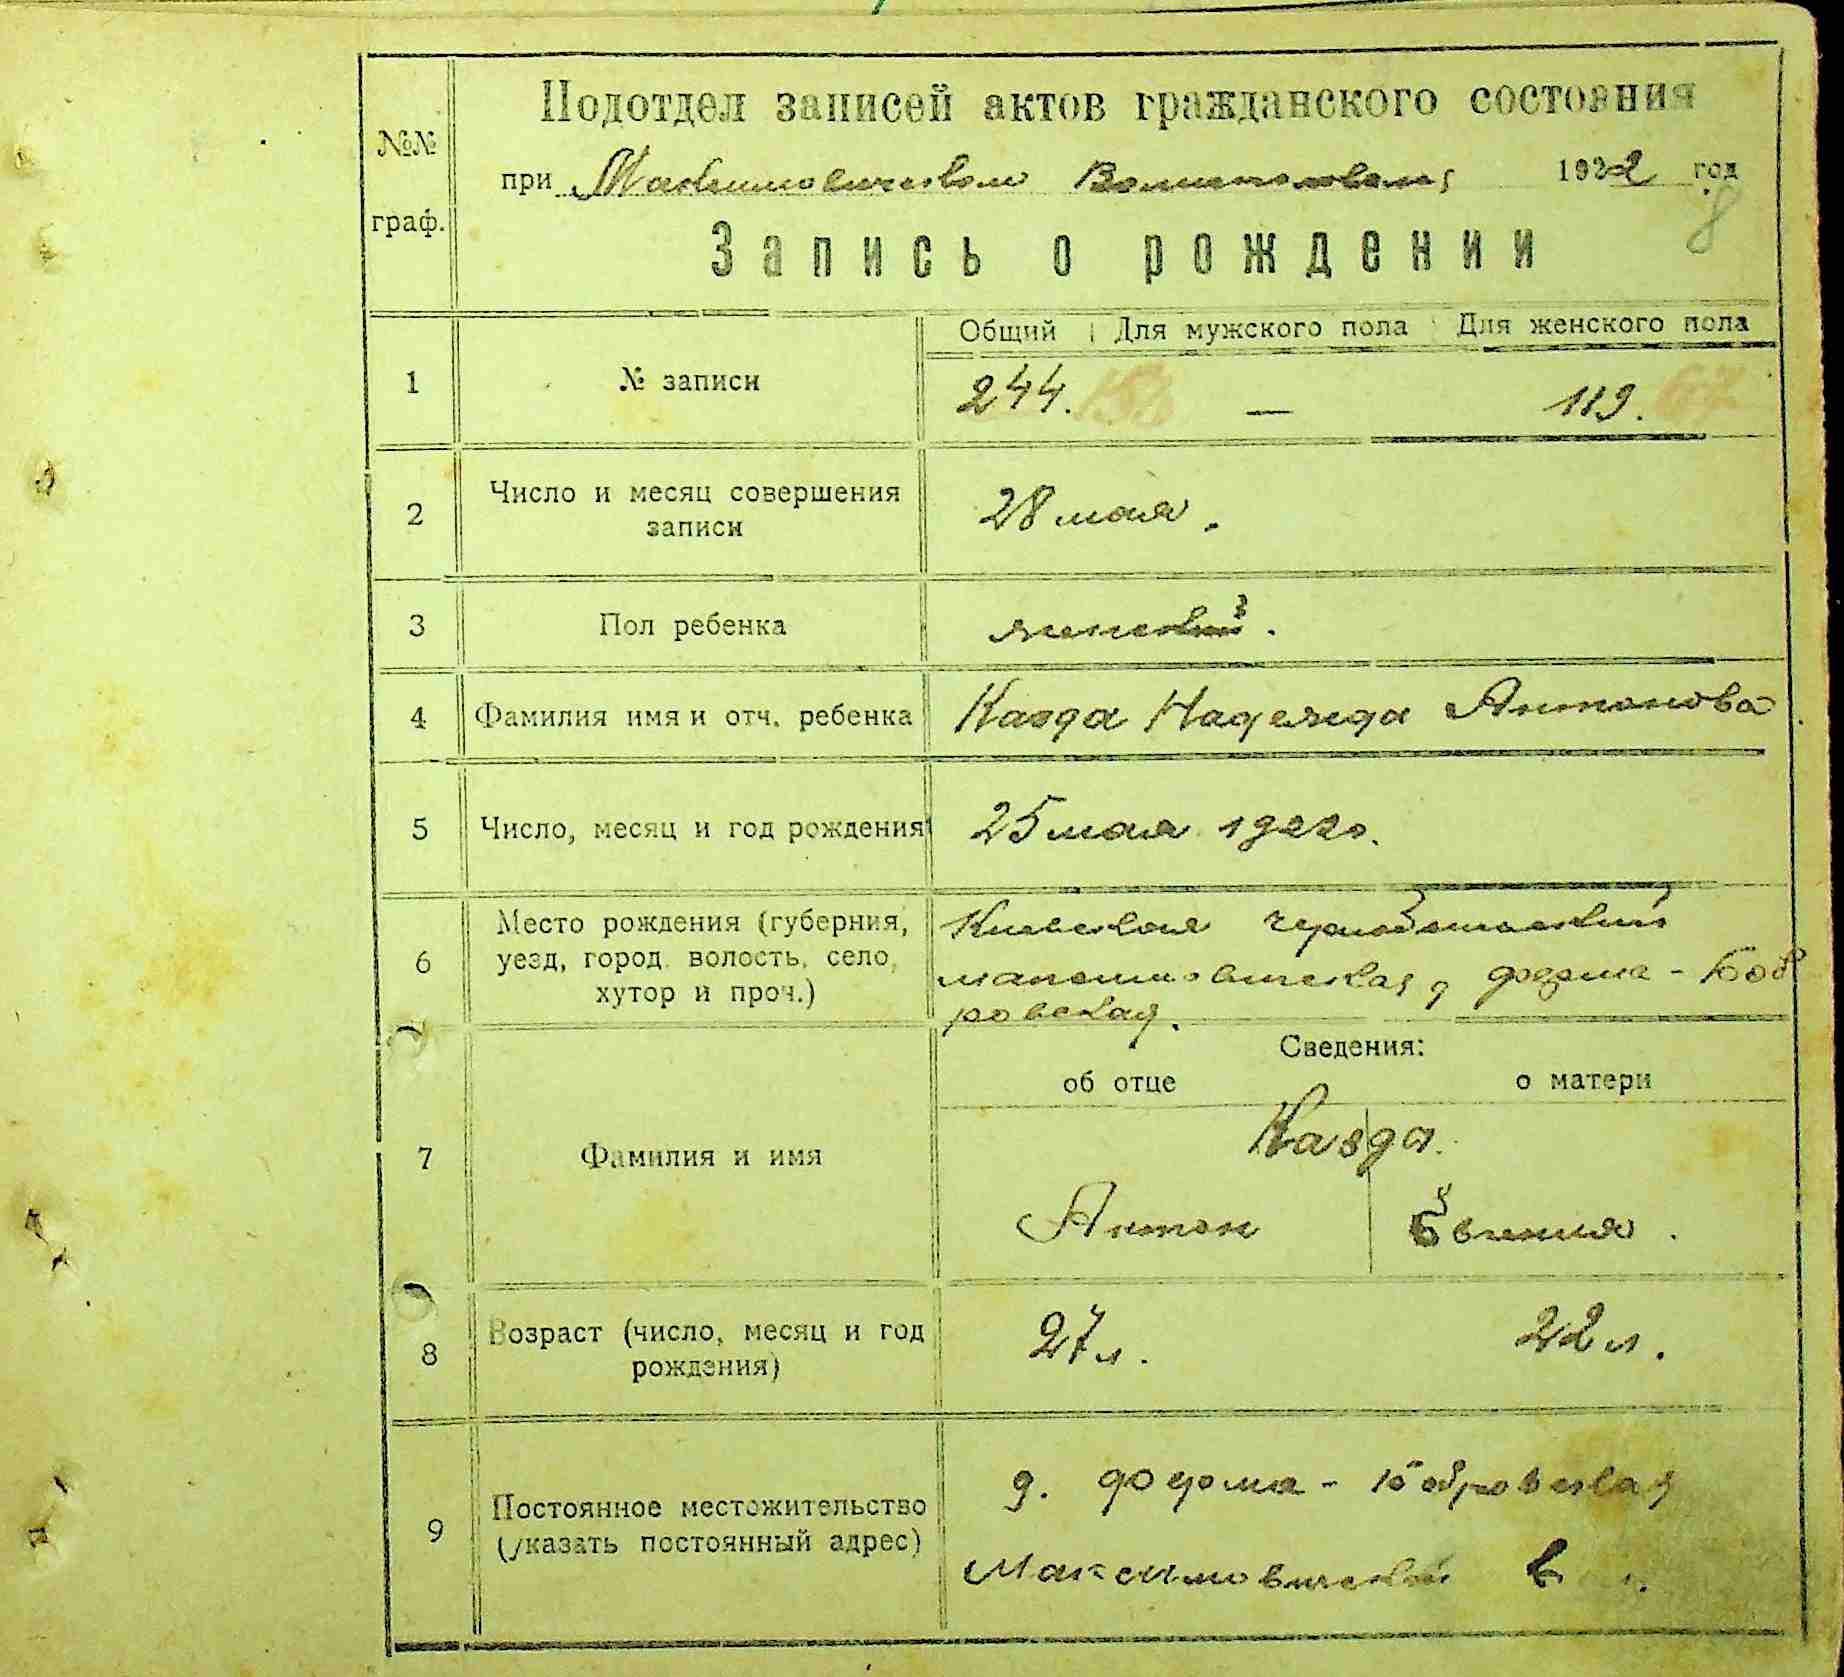 №№
граф.
Подотдел записей актов гражданского состояния
при Максимовическом Волисполкоме 1922 год
8
Запись о рождении
Общий Для мужского пола Для женского пола
1 № записи 244. — 119. 67
2 Число и месяц совершения
записи
28 мая.
3 Пол ребенка женский.
4 Фамилия имя и отч. ребенка Казда Надежда Антонова
5 Число, месяц и год рождения 25 мая 1922 г.
6 Место рождения (губерния,
уезд, город, волость, село,
хутор и проч.)
Киевская Чернобыльский
Максимовическая д Федома - Боб
ровская.
Сведения:
об отце о матери
7 Фамилия и имя
Казда.
Антон Евгения.
8 Возраст (число, месяц и год
рождения)
27 л. 22 л.
9 Постоянное местожительство
(указать постоянный адрес)
д. - Бобровская
Максимовической в